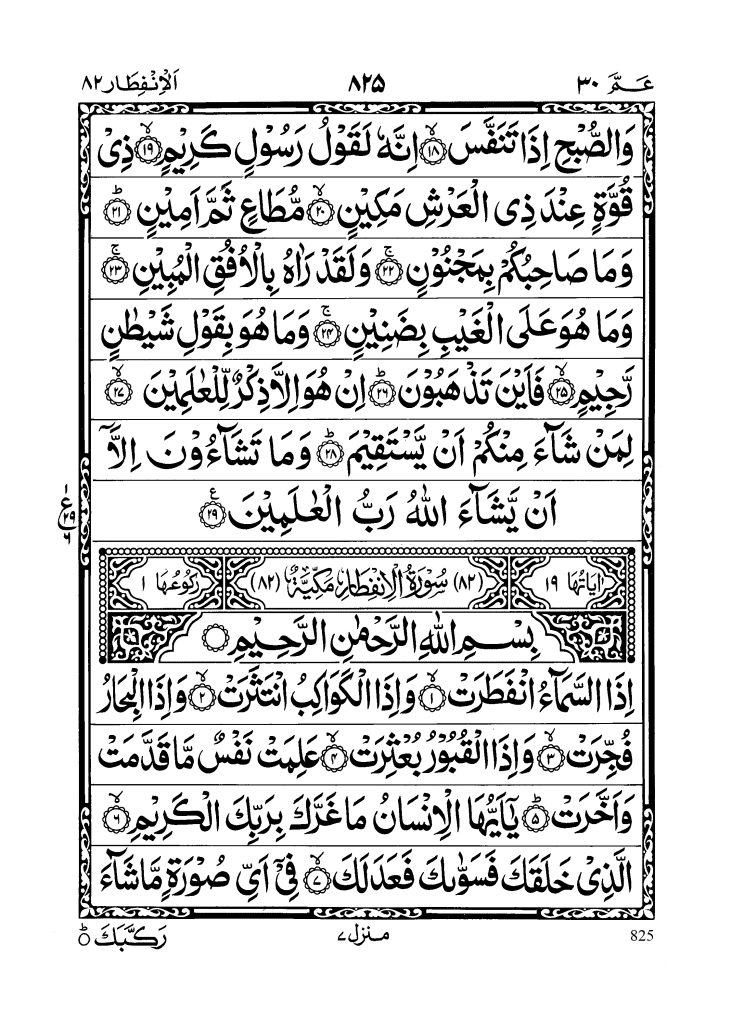 عَمَّ ۳۰
۸۲۵
اَلْاِنْفِطَار ۸۲
وَالصُّبْحِ اِذَا تَنَفَّسَ ۙ﴿۱۸﴾ اِنَّهٗ لَقَوْلُ رَسُوْلٍ كَرِيْمٍ ۙ﴿۱۹﴾ ذِىْ
قُوَّةٍ عِنْدَ ذِى الْعَرْشِ مَكِيْنٍ ۙ﴿۲۰﴾ مُّطَاعٍ ثَمَّ اَمِيْنٍ ؕ﴿۲۱﴾
وَمَا صَاحِبُكُمْ بِمَجْنُوْنٍ ۚ﴿۲۲﴾ وَلَقَدْ رَاٰهُ بِالْاُفُقِ الْمُبِيْنِ ۚ﴿۲۳﴾
وَمَا هُوَ عَلَى الْغَيْبِ بِضَنِيْنٍ ۚ﴿۲۴﴾ وَمَا هُوَ بِقَوْلِ شَيْطٰنٍ
رَّجِيْمٍ ۙ﴿۲۵﴾ فَاَيْنَ تَذْهَبُوْنَ ؕ﴿۲۶﴾ اِنْ هُوَ اِلَّا ذِكْرٌ لِّلْعٰلَمِيْنَ ۙ﴿۲۷﴾
لِمَنْ شَآءَ مِنْكُمْ اَنْ يَّسْتَقِيْمَ ؕ﴿۲۸﴾ وَمَا تَشَآءُوْنَ اِلَّاۤ
اَنْ يَّشَآءَ اللّٰهُ رَبُّ الْعٰلَمِيْنَ ﴿۲۹﴾ ع
۱ ع ۲۹ ۶
اٰيَاتُهَا ۱۹
(۸۲) سُوْرَةُ الْاِنْفِطَارِ مَكِّيَّةٌ (۸۲)
رُكُوْعُهَا ۱
بِسْمِ اللّٰهِ الرَّحْمٰنِ الرَّحِيْمِ ○
اِذَا السَّمَآءُ انْفَطَرَتْ ۙ﴿۱﴾ وَاِذَا الْكَوَاكِبُ انْتَثَرَتْ ۙ﴿۲﴾ وَاِذَا الْبِحَارُ
فُجِّرَتْ ۙ﴿۳﴾ وَاِذَا الْقُبُوْرُ بُعْثِرَتْ ۙ﴿۴﴾ عَلِمَتْ نَفْسٌ مَّا قَدَّمَتْ
وَاَخَّرَتْ ؕ﴿۵﴾ يٰۤاَيُّهَا الْاِنْسَانُ مَا غَرَّكَ بِرَبِّكَ الْكَرِيْمِ ۙ﴿۶﴾
الَّذِىْ خَلَقَكَ فَسَوّٰىكَ فَعَدَلَكَ ۙ﴿۷﴾ فِىْۤ اَىِّ صُوْرَةٍ مَّا شَآءَ
825
منزل ۷
رَكَّبَكَ ؕ○